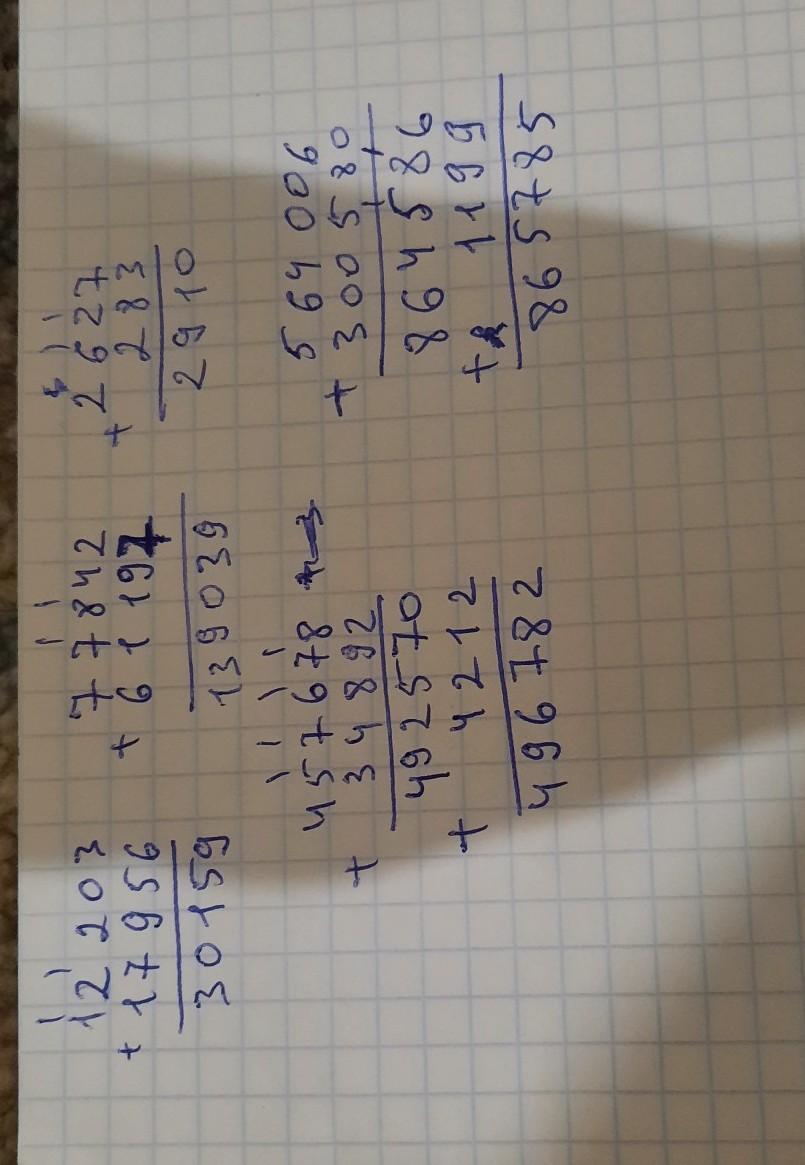 1 1
12 203
+ 17956
30159
1 1
77842
+ 61197
139039
1 1
2627
+ 283
2910
1 1 1 1
457678
+ 34892
492570
+ 4212
496782
564006
+ 300580
864586
+ 1199
865785